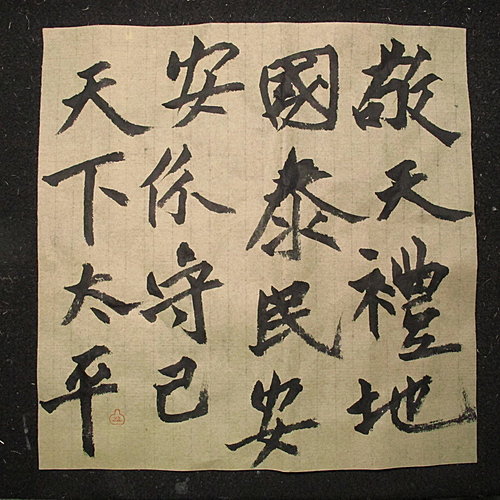 敬天禮地
國泰民安
安份守己
天下太平